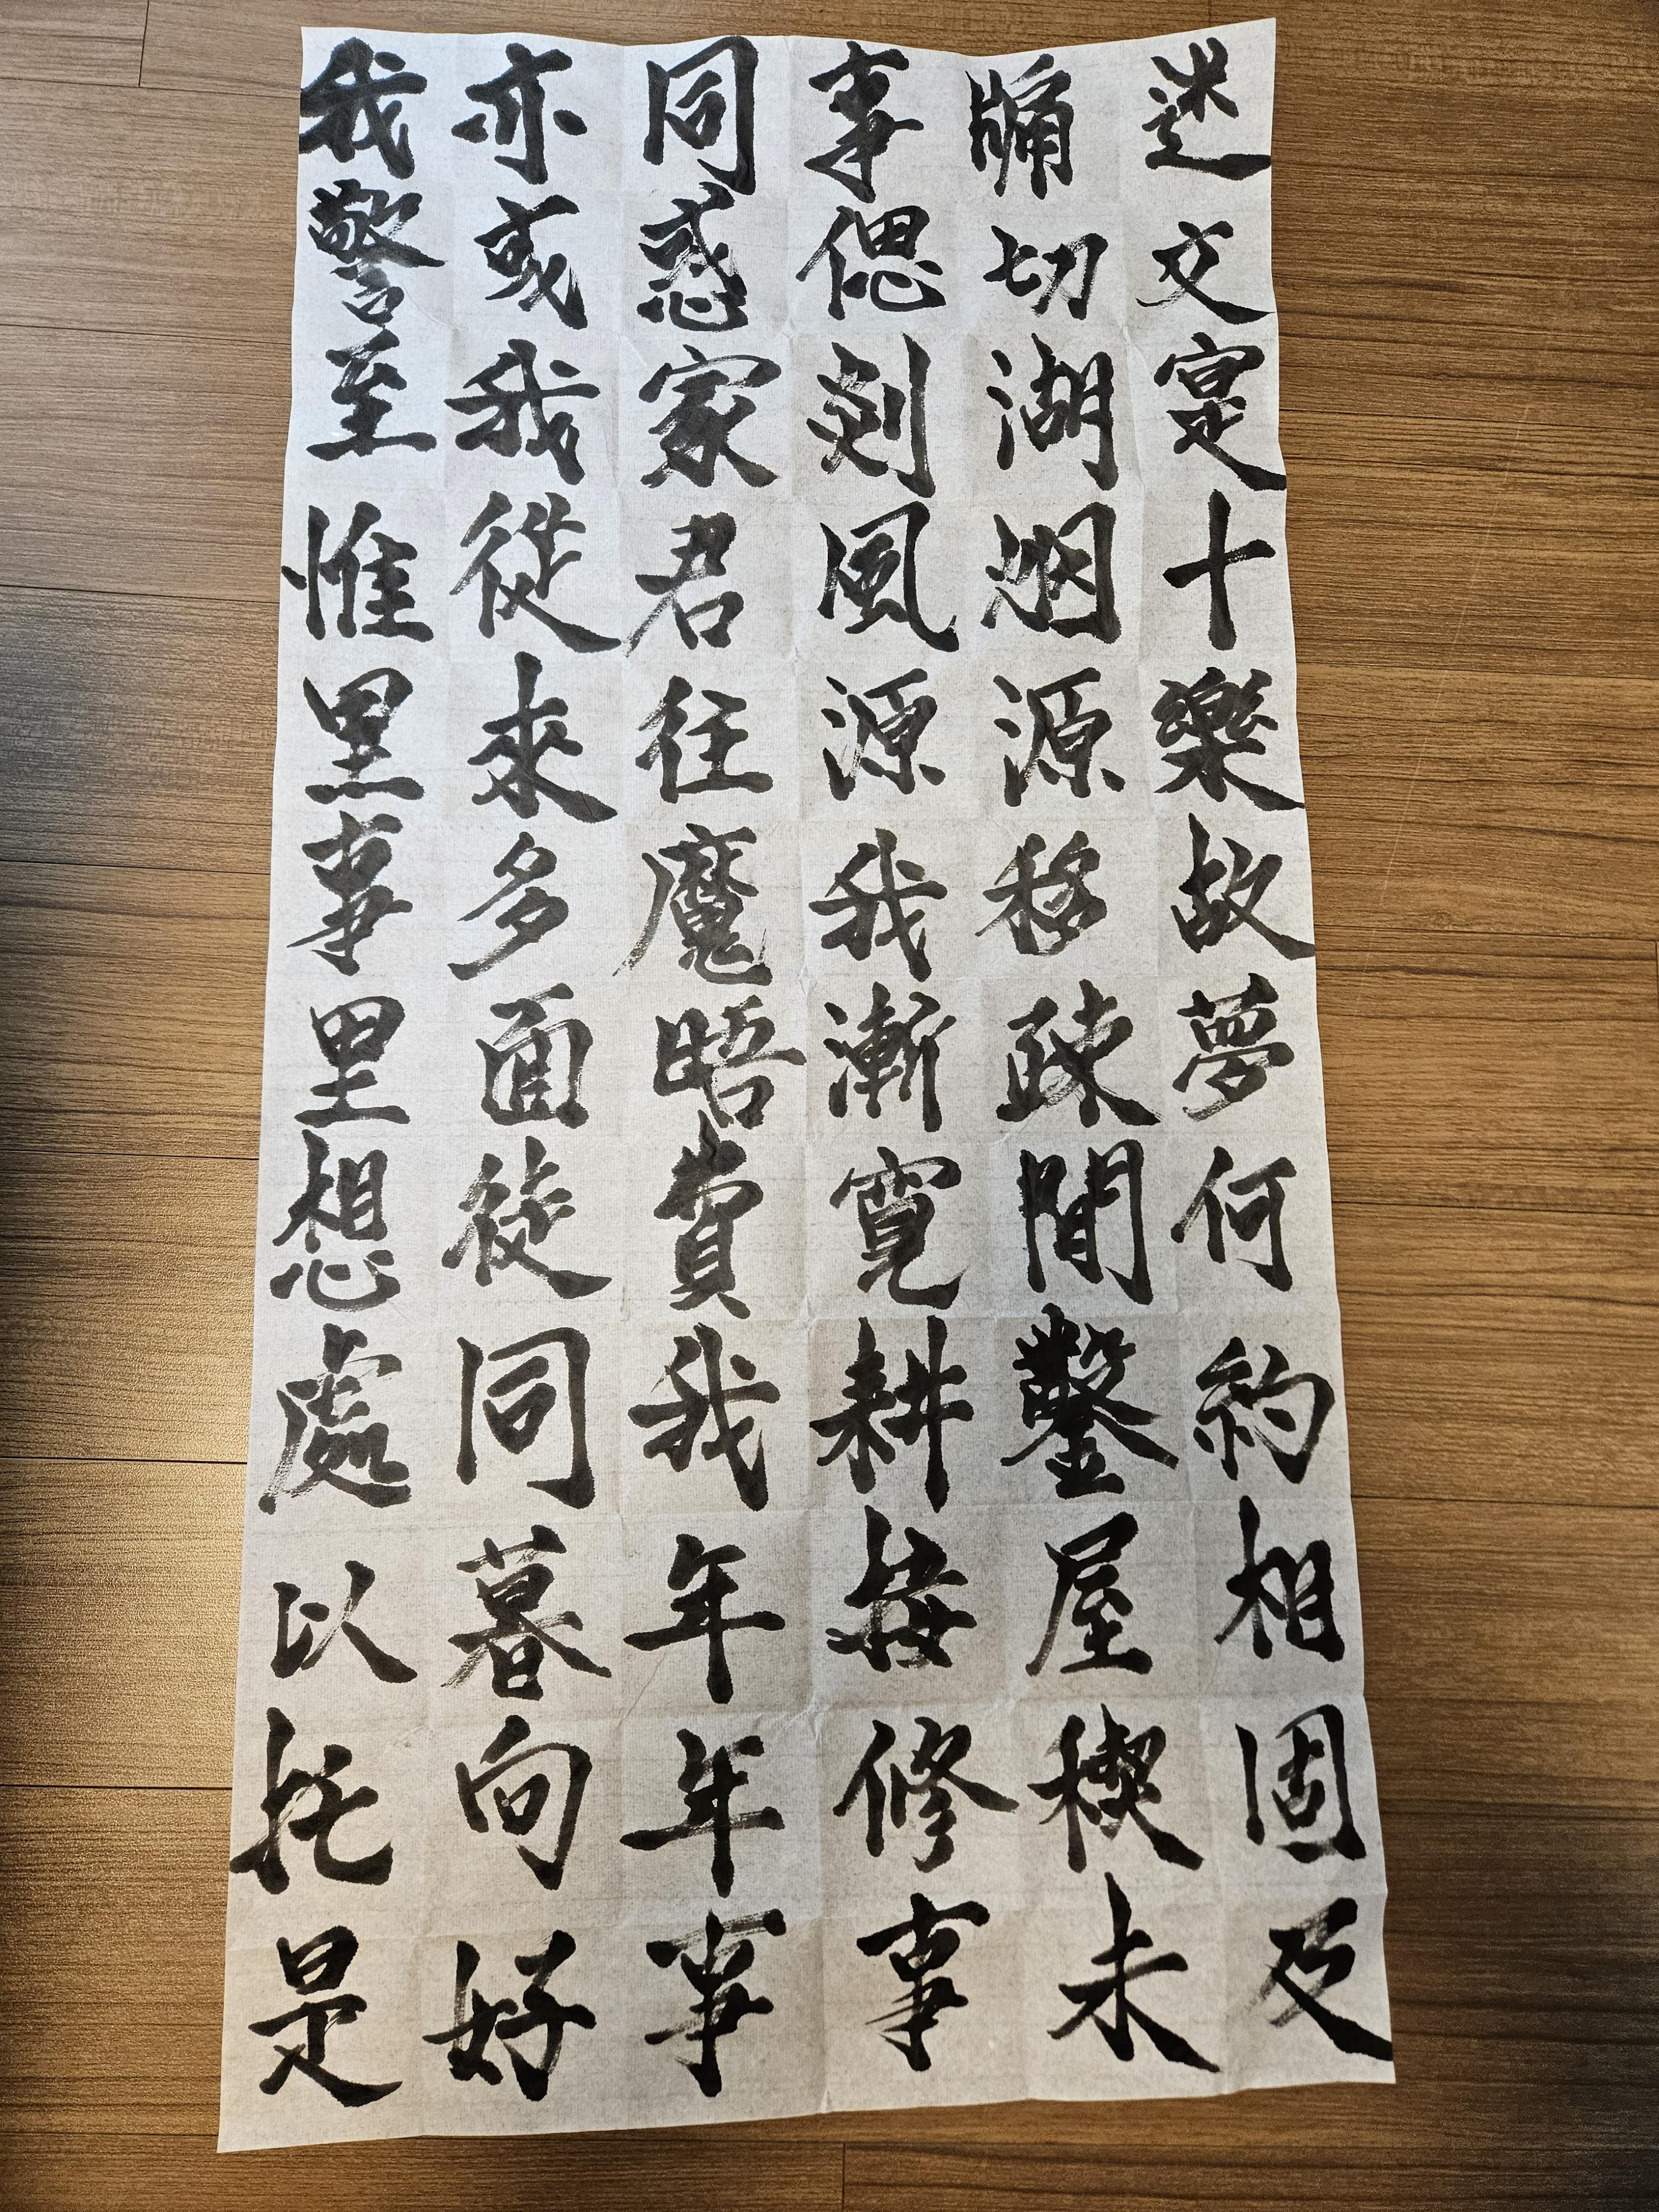 迷交寔十樂故夢何約相固及
牖切湖烟源移疎閒鑿屋稧未
事偲剡風源我漸寬耕接修事
同惑家君往魔晤費我年年事
亦或我從來多面徒同暮向好
我警至惟里事里想處以托是